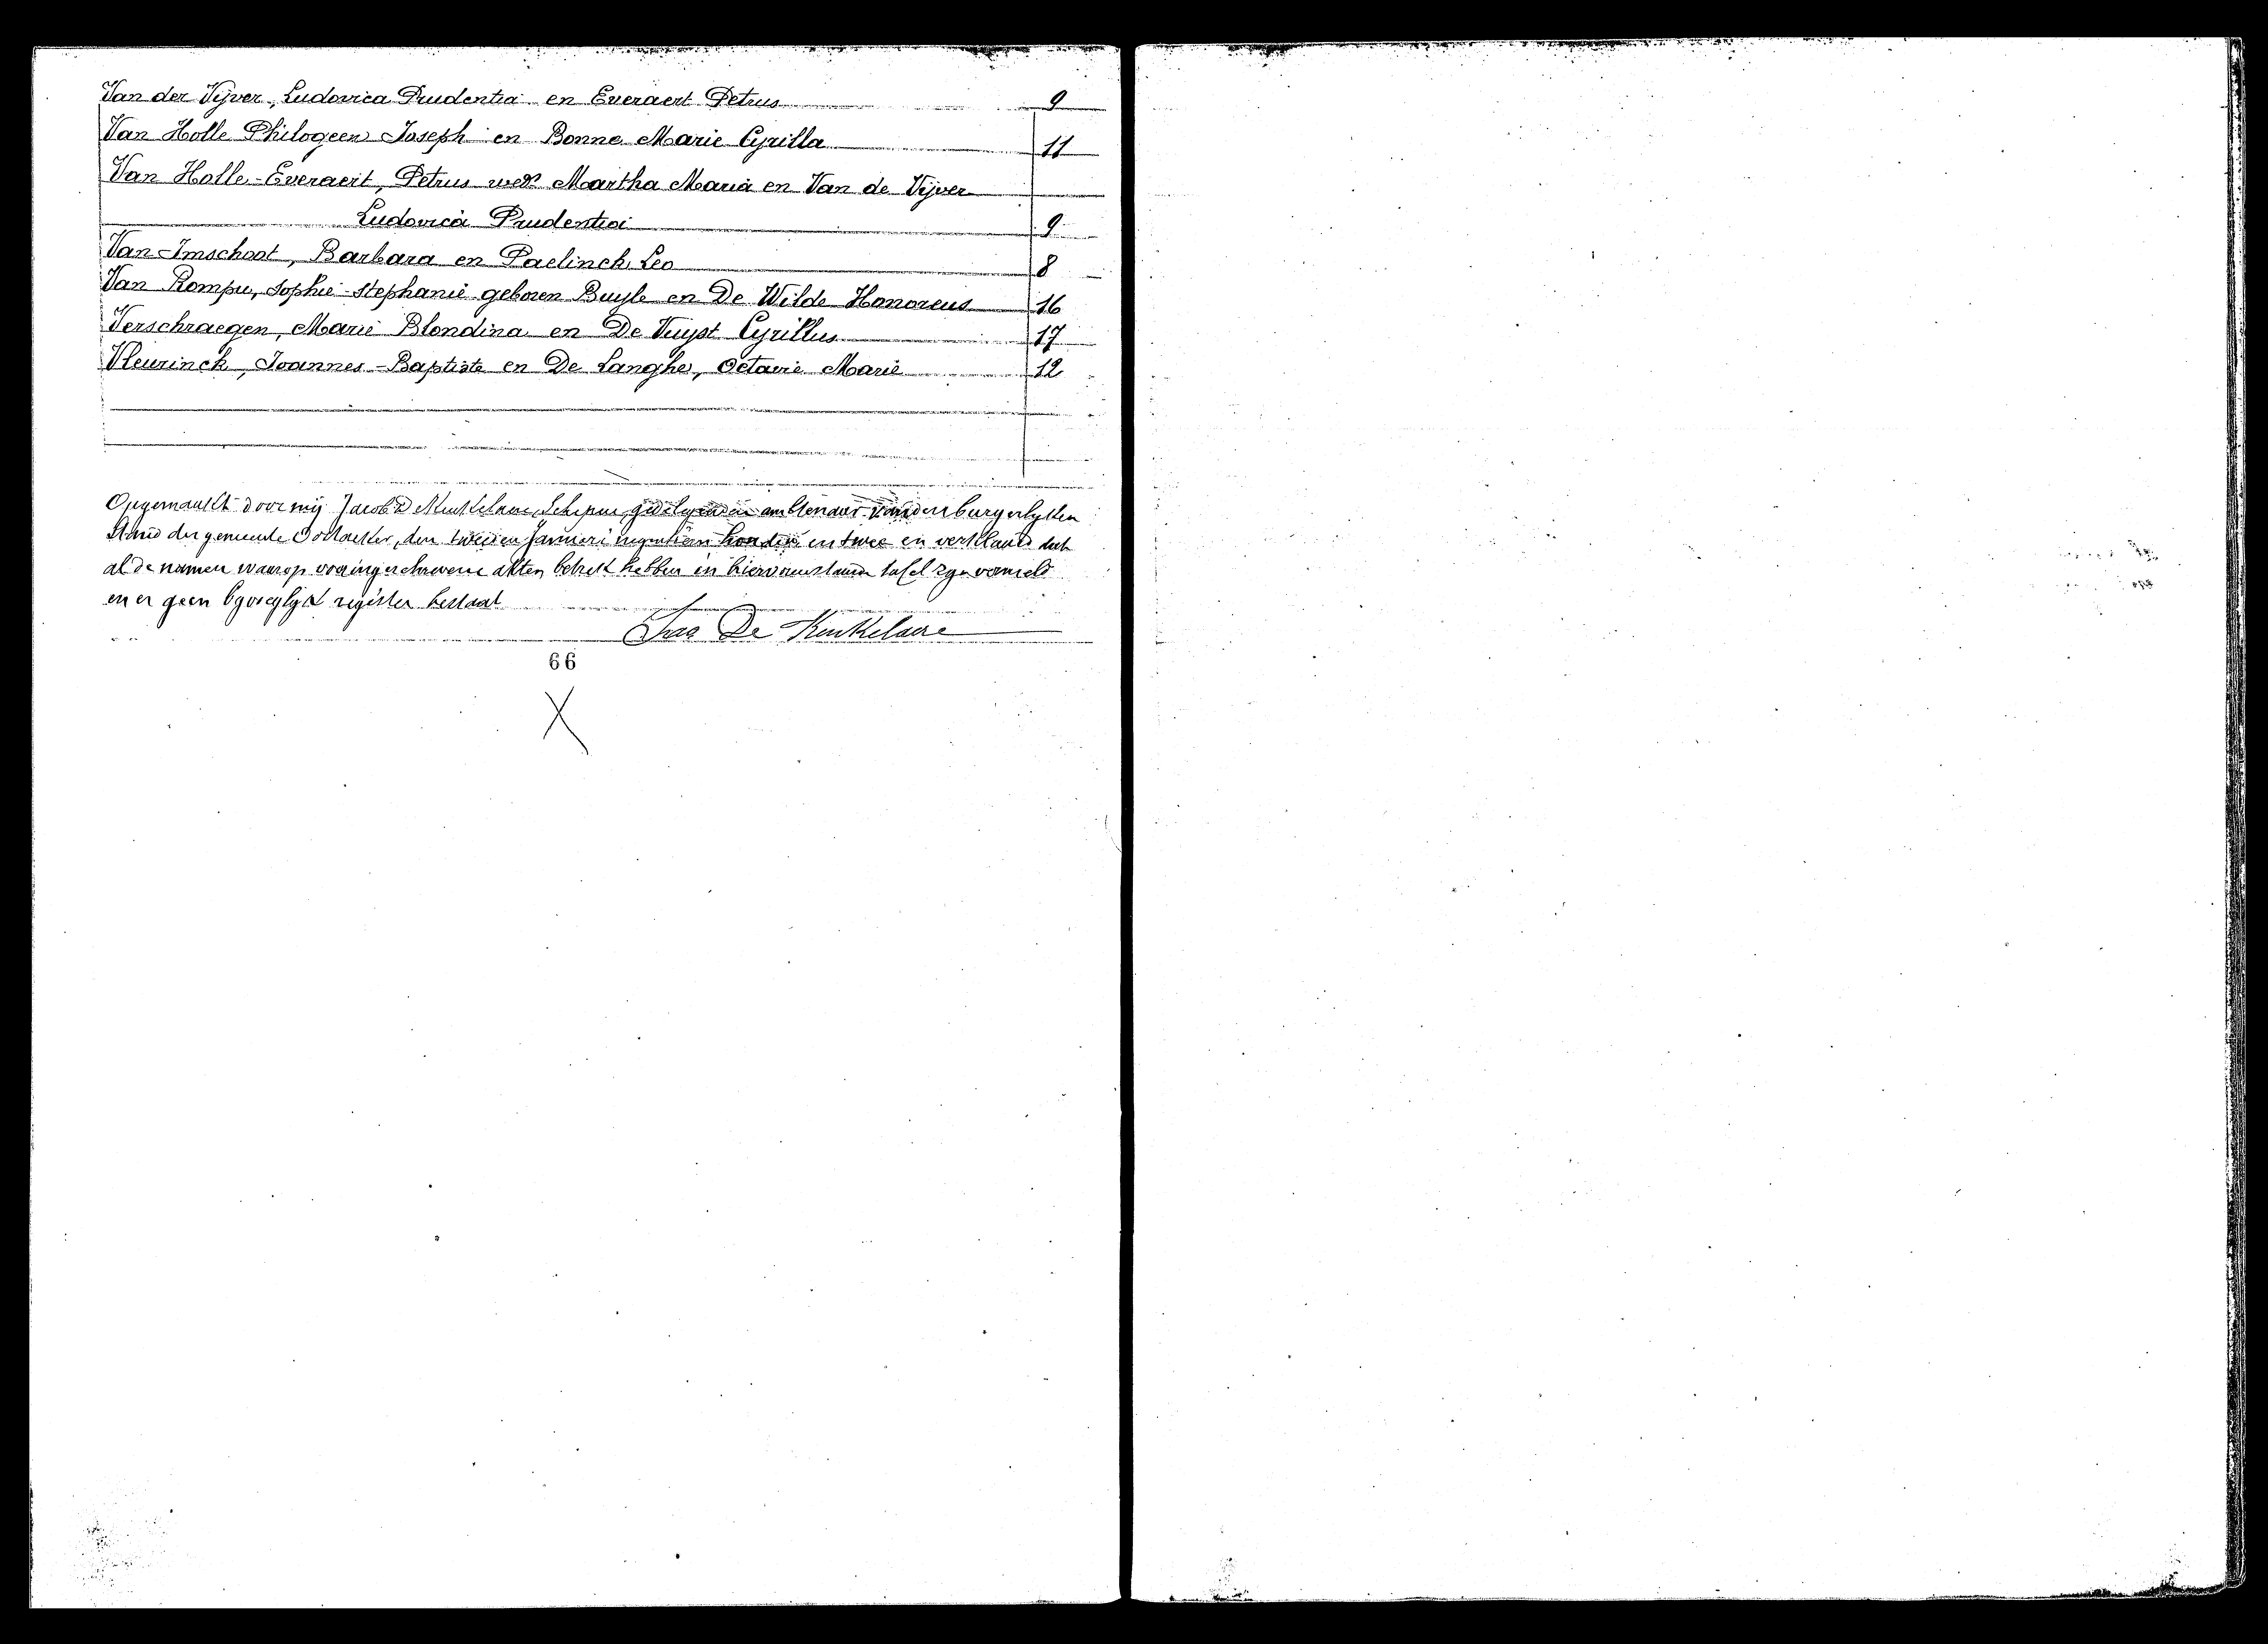 Van der Vijver, Ludovica Prudentia en Everaert Petrus 9
Van Holle Philogeen Joseph en Bonne Marie Cyrilla 11
Van Holle-Everaert, Petrus Martha Maria en Van de Vijver
Ludovica Prudentia 9
Van Imschoot, Barbara en Paelinck Leo 8
Van Rompu, Sophie-Stephanie geboren Buyle en De Wilde Honoreus 16
Verschraegen, Marie Blondina en De Vuyst Cyrillus 17
Vleurinck, Joannes-Baptiste en De Langhe, Octavie Marie 12
Opgemaakt door mij Jacob De Schepen, ambtenaar van den burgerlyken
Stand der gemeente Oostacker, den tweeden Januari negentien honderd en twee en verklaard dat
al de namen waarop vooringeschrevene akten betrek hebben in tafel zyn vermeld
en er geen byvoeglyk register bestaat
Jaa De Keukelaere
66
X